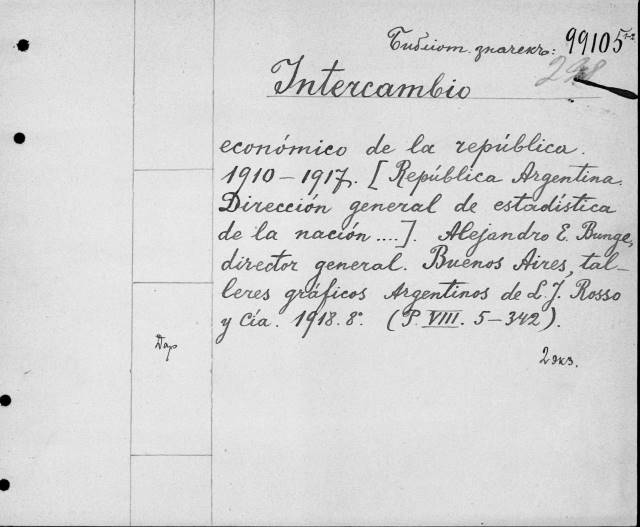 Библиот. значекъ: 99105 1-2
298
Intercambio
económico de la república.
1910–1917. [República Argentina.
Dirección general de estadística
de la nación ....]. Alejandro E. Bunge,
director general. Buenos Aires, tal-
leres gráficos Argentinos de L. J. Rosso
y Cía. 1918. 8°. (P. VIII. 5–342).
Дар
2 экз.